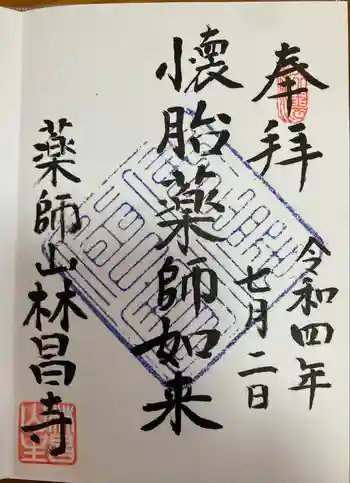 奉拝
令和四年
七月二日
懐胎薬師如来
薬師山林昌寺